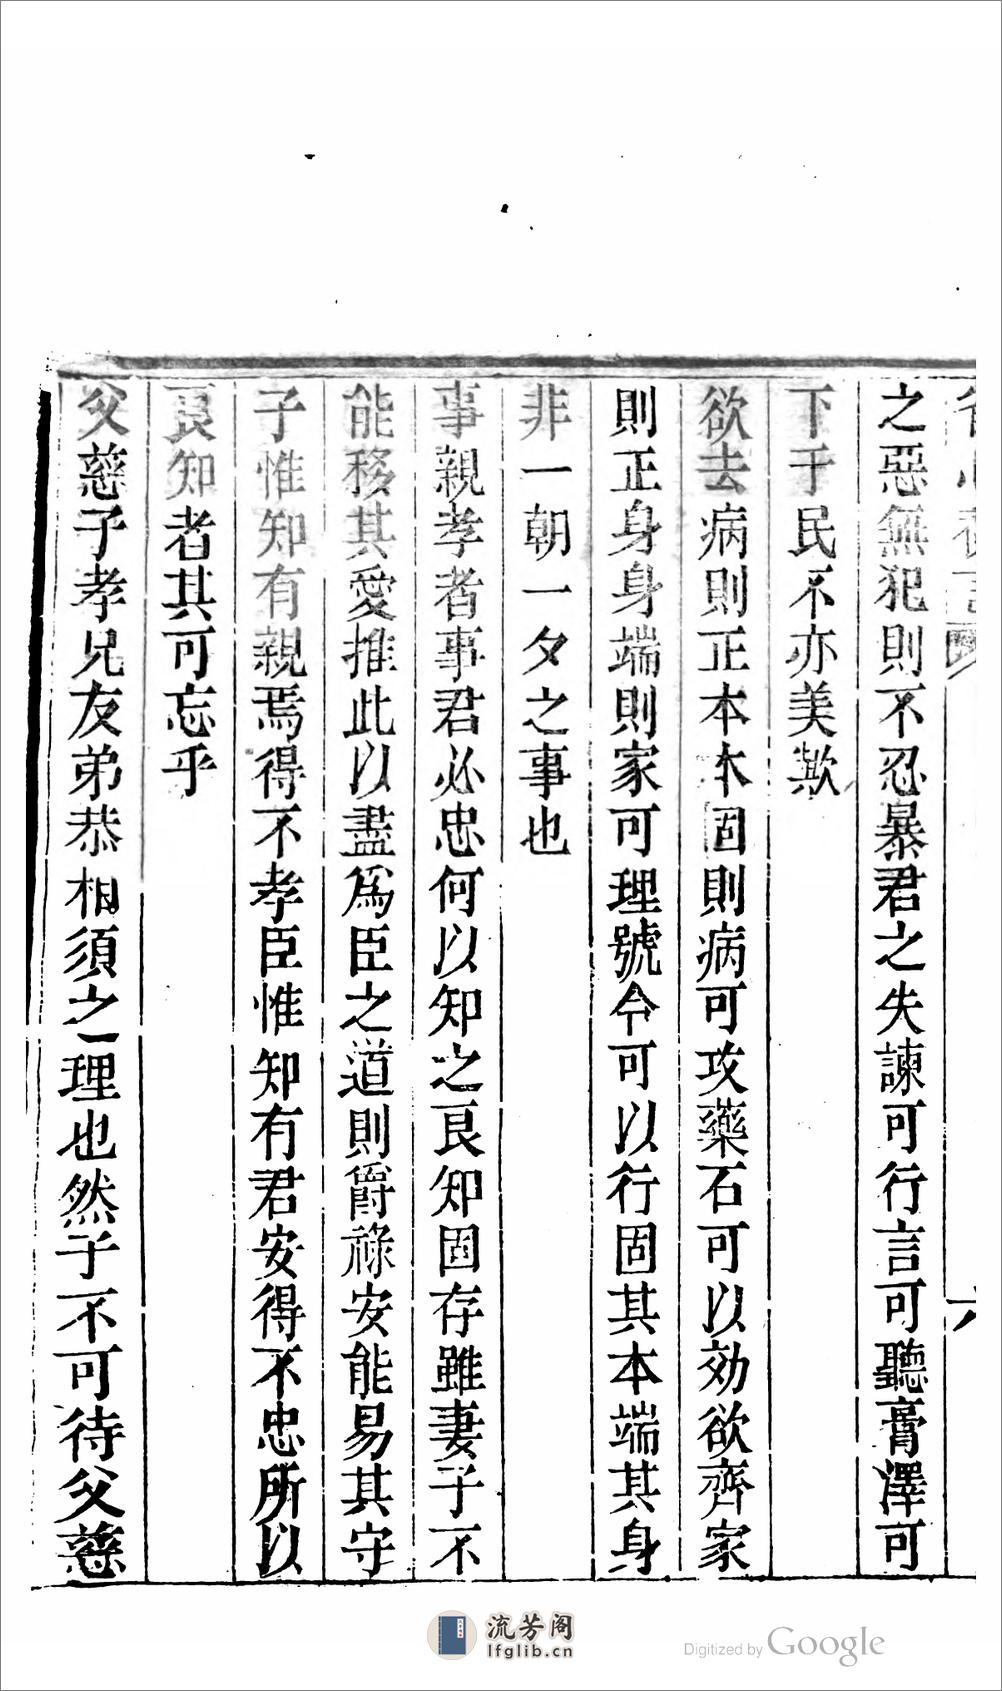 之惡無犯則不忍暴君之失諫可行言可聽膏澤可
下于民不亦美歟
欲去病則正本本固則病可攻藥石可以効欲齊家
則正身身端則家可理號令可以行固其本端其身
非一朝一夕之事也
事親孝者事君必忠何以知之良知固存雖妻子不
能移其愛推此以盡爲臣之道則爵祿安能易其守
子惟知有親焉得不孝臣惟知有君安得不忠所以
良知者其可忘乎
父慈子孝兄友弟恭相須之理也然子不可待父慈
流芳阁
lfglib.cn
Digitized by Google